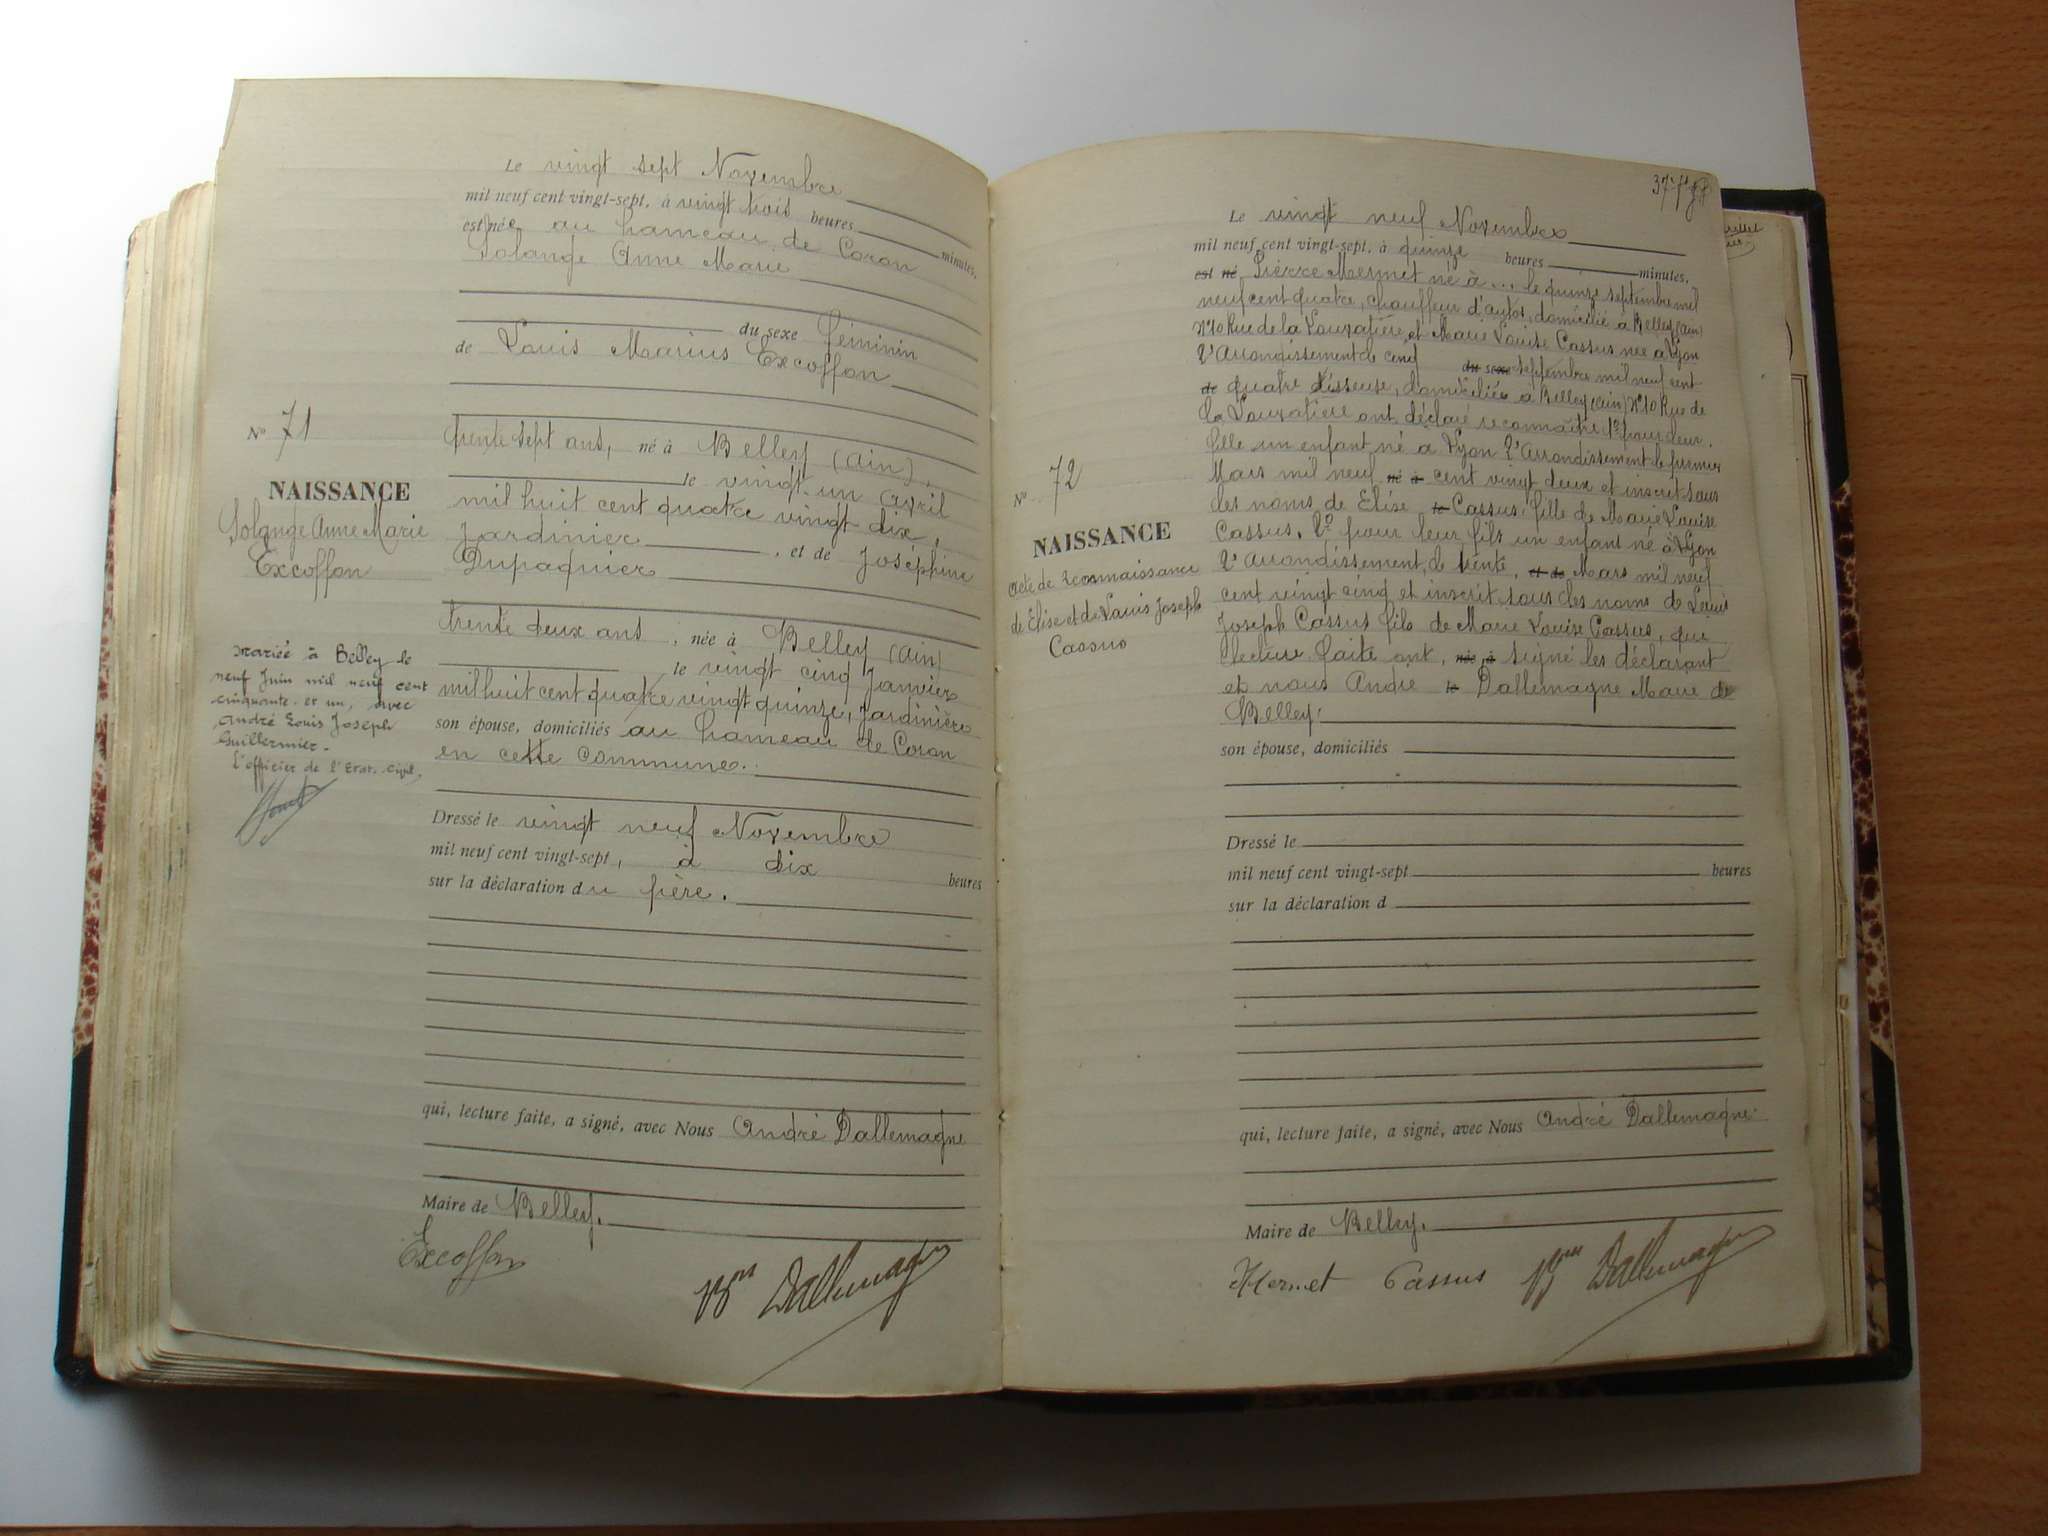 Le vingt sept Novembre
mil neuf cent vingt-sept, à vingt trois heures minutes,
est née au hameau de Coron
Solange Anne Marie
du sexe féminin
de Louis Marius Excoffon
trente sept ans, né à Belley (Ain),
le vingt un avril
mil huit cent quatre vingt dix,
jardinier, et de Joséphine
Dupaquier
trente deux ans, née à Belley (Ain)
le vingt cinq Janvier
mil huit cent quatre vingt quinze, jardinière
son épouse, domiciliés au hameau de Coron
en cette commune.
Dressé le vingt neuf Novembre
mil neuf cent vingt-sept, à dix heures
sur la déclaration du père.
qui, lecture faite, a signé, avec Nous André Dallemagne
Maire de Belley.
Excoffon
Dallemagne
N° 71
NAISSANCE
Solange Anne Marie
Excoffon
Mariée à Belley le
neuf Juin mil neuf cent
cinquante et un, avec
André Louis Joseph
Guillermier.
L'officier de l'Etat-Civil,
377
Le vingt neuf Novembre
mil neuf cent vingt-sept, à quinze heures minutes,
est né Pierre Mermet né à ... le quinze septembre mil
neuf cent quatre, chauffeur d'autos, domicilié à Belley (Ain)
N°10 Rue de la et Marie Louise Cassus née à Lyon
2e Arrondissement le cinq du sexe septembre mil neuf cent
de quatre tisseuse, domiciliée à Belley (Ain) N°10 Rue de
la ont déclaré reconnaitre 1° pour leur
fille un enfant né à Lyon 2e Arrondissement le premier
Mars mil neuf né à cent vingt deux et inscrit sous
les noms de Elise le Cassus fille de Marie Louise
Cassus, 2° pour leur fils un enfant né à Lyon
2e Arrondissement, le trente, et de Mars mil neuf
cent vingt cinq et inscrit sous les noms de Louis
Joseph Cassus fils de Marie Louise Cassus, que
lecture faite ont, née à signé les déclarant
et nous André le Dallemagne Maire de
Belley.
son épouse, domiciliés
Dressé le
mil neuf cent vingt-sept heures
sur la déclaration d
qui, lecture faite, a signé, avec Nous André Dallemagne
Maire de Belley.
Mermet Cassus Dallemagne
N° 72
NAISSANCE
Acte de reconnaissance
de Elise et de Louis Joseph
Cassus